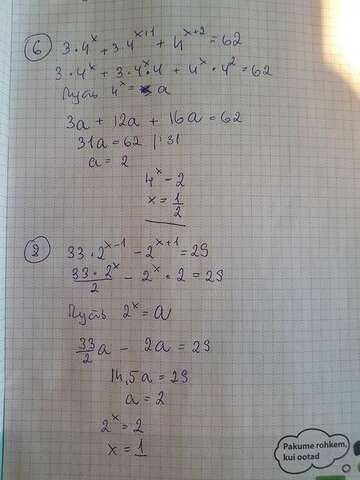 6 3·4^x + 3·4^(x+1) + 4^(x+2) = 62
3·4^x + 3·4^x·4 + 4^x·4^2 = 62
Пусть 4^x = a
3a + 12a + 16a = 62
31a = 62 | :31
a = 2
4^x = 2
x = 1/2
2 33·2^(x-1) - 2^(x+1) = 29
33·2^x/2 - 2^x·2 = 29
Пусть 2^x = a
33/2 a - 2a = 29
14,5a = 29
a = 2
2^x = 2
x = 1
Pakume rohkem,
kui ootad